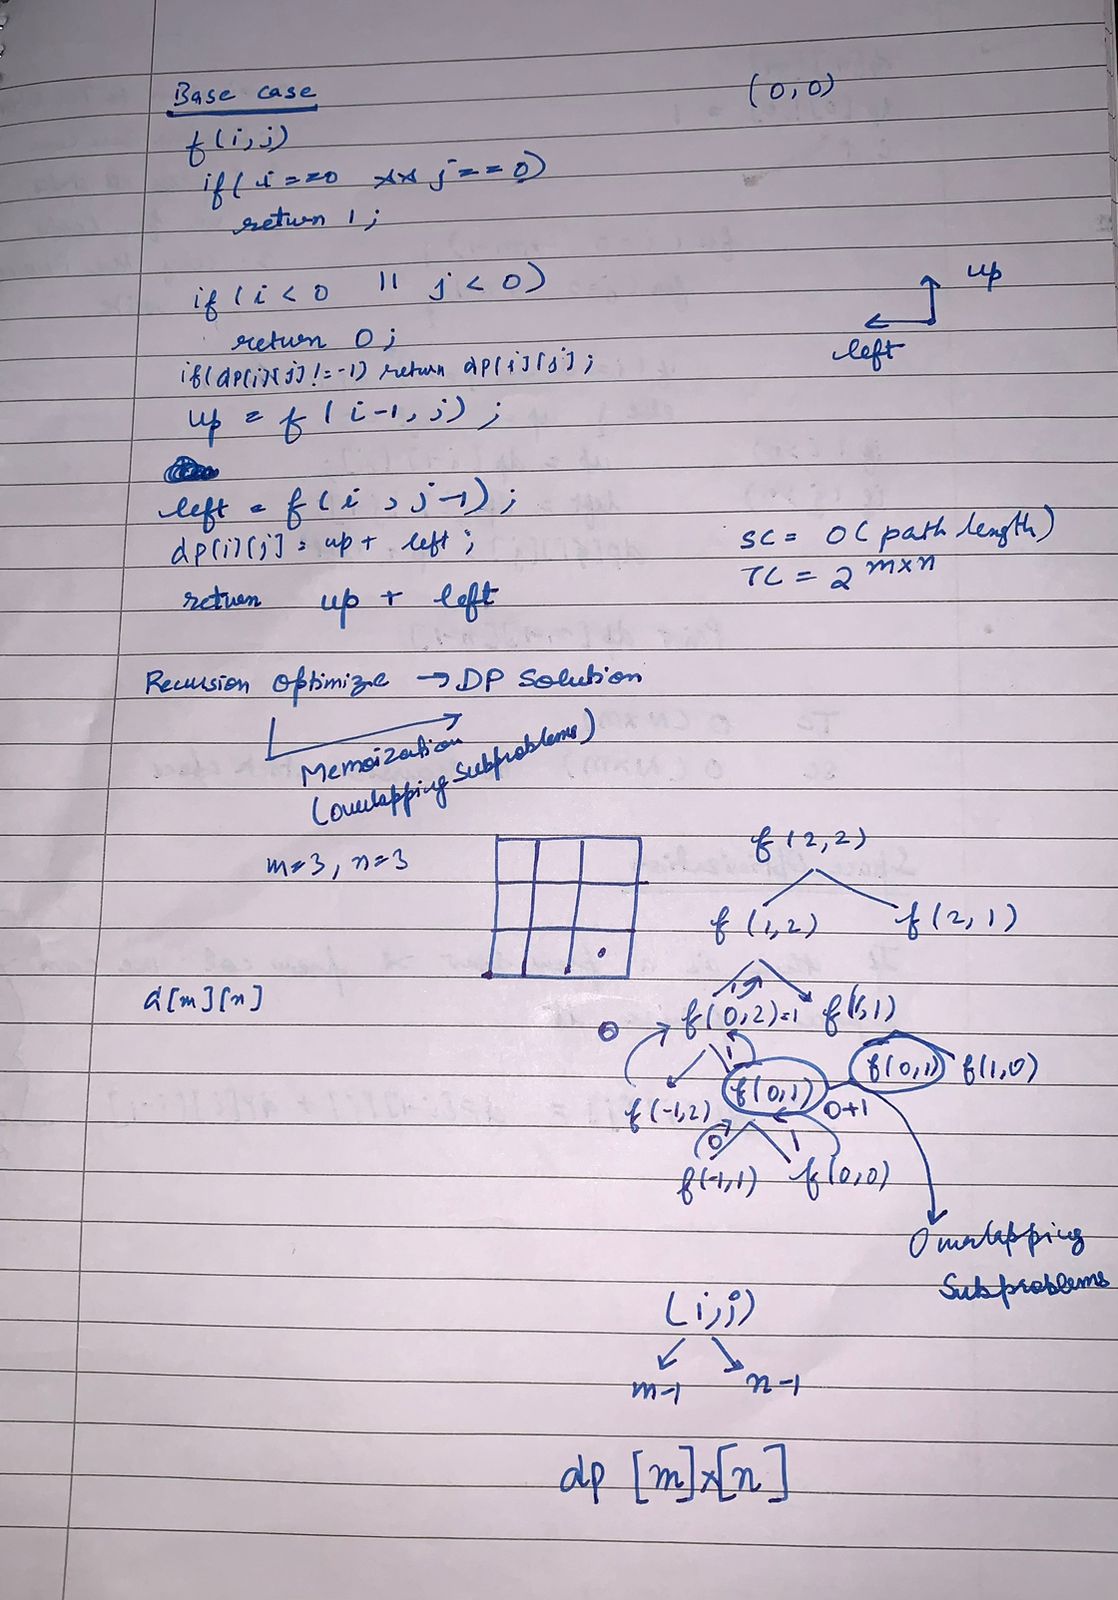 Base case
(0,0)
f(i,j)
if( i==0 && j==0)
return 1;
if (i<0 || j<0)
return 0;
up
left
if(dp[i][j]!=-1) return dp[i][j];
up = f(i-1, j);
left = f(i, j-1);
dp[i][j] = up + left;
return up + left
SC = O(path length)
TC = 2^m×n
Recursion optimize → DP Solution
Memoization
(overlapping subproblems)
m=3, n=3
f(2,2)
f(1,2) f(2,1)
a[m][n]
1
0 f(0,2)=1 f(1,1)
1
f(-1,2) f(0,1) 0+1 f(0,1) f(1,0)
0 1
f(-1,1) f(0,0)
Overlapping
Subproblems
(i,j)
m-1 n-1
dp [m]×[n]